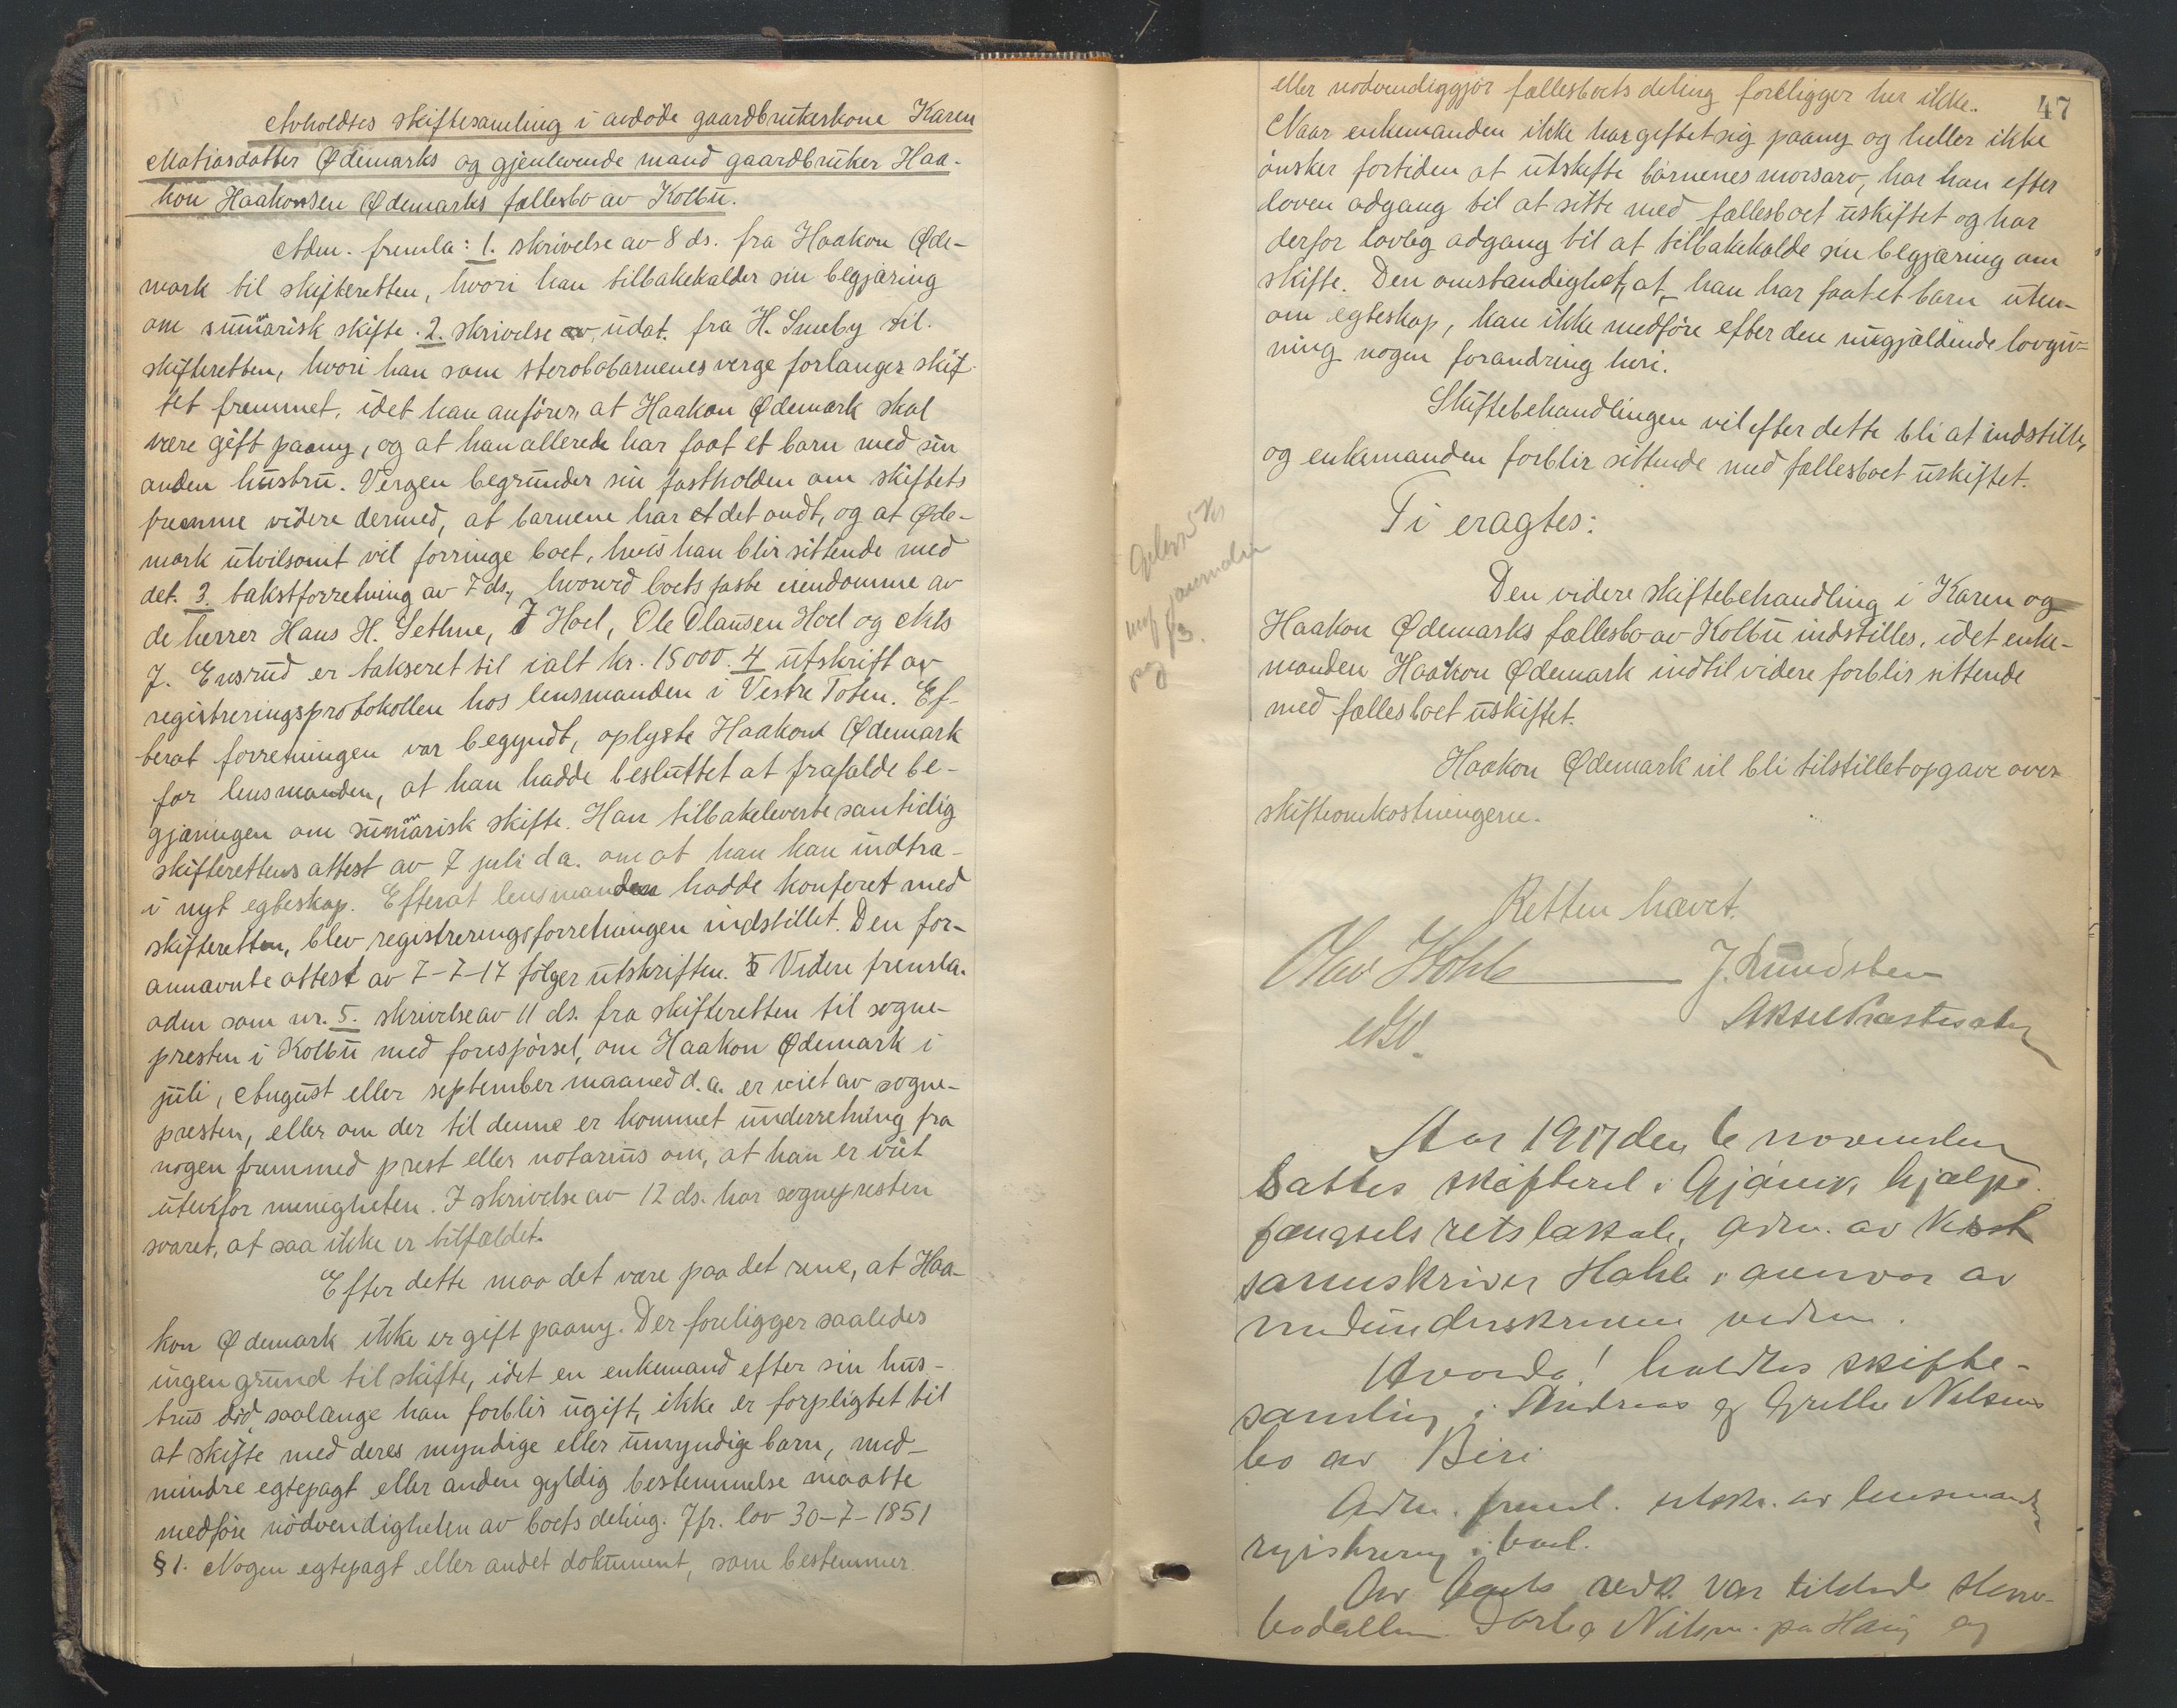 Avholdtes skiftesamling i avdöde gaardbrukerkone Karen
Matiasdatter Ødemarks og gjenlevende mand gaardbruker Haa-
kon Haakonsen Ødemarks fællesbo av Kolbu.
Adm. fremla: 1. skrivelse av 8 ds. fra Haakon Øde-
mark til skifteretten, hvori han tilbakekalder sin begjæring
om summarisk skifte. 2. skrivelse av, udat. fra H. Smeby til
skifteretten, hvori han som sterbobarnenes verge forlanger skif-
tet fremmet, idet han anförer, at Haakon Ødemark skal
være gift paany, og at han allerede har faat et barn med sin
anden hustru. Vergen begrunder sin fastholden om skiftets
fremme videre dermed, at barnene har et det ondt, og at Øde-
mark utvilsomt vil forringe boet, hvis han blir sittende med
det. 3. takstforretning av 7 ds., hvorved boets faste eiendomme av
de herrer Hans H. Sethne, J Hoel, Ole Olausen Hoel og Nils
J. Ensrud er takseret til ialt kr. 15000. 4 utskrift av
registreringsprotokollen hos lensmanden i Vestre Toten. Ef-
terat forretningen var begyndt, oplyste Haakon Ødemark
for lensmanden, at han hadde besluttet at frafalde be-
gjæringen om summarisk skifte. Han tilbakeleverte samtidig
skifterettens attest av 7 juli d a. om at han kan indtra-
i nyt egteskap. Efterat lensmanden hadde konferet med
skifteretten, blev registreringsforretningen indstillet. Den for-
annævnte attest av 7-7-17 fölger utskriften. Videre fremla.
adm som nr. 5. skrivelse av 11 ds. fra skifteretten til sogne-
presten i Kolbu med forespörsel, om Haakon Ødemark i
juli, August eller september maaned d. a. er viet av sogne-
presten, eller om der til denne er kommet underretning fra
nogen fremmed prest eller notarius om, at han er viet
utenfor menigheten. I skrivelse av 12 ds. har sognepresten
svaret, at saa ikke er tilfældet.
Efter dette maa det være paa det rene, at Haa-
kon Ødemark ikke er gift paany. Der foreligger saaledes
ingen grund til skifte, idet en enkemand efter sin hus-
trus död saalænge han forblir ugift, ikke er forpligtet til
at skifte med deres myndige eller umyndige barn, med-
mindre egtepagt eller anden gyldig bestemmelse maatte
medföre nödvendigheten av boets deling. Jfr. lov 30-7-1851
§ 1. Nogen egtepagt eller andet dokument, som bestemmer
47
eller nödvendiggjör fællesboets deling foreligger her ikke.
Naar enkemanden ikke har giftet sig paany og heller ikke
önsker fortiden at utskifte barnenes morsarv, har han efter
loven adgang til at sitte med fællesboet uskiftet og har
derfor lovlig adgang til at tilbakekalde sin begjæring om
skifte. Den omstændighet, at han har faat et barn uten-
om egteskap, kan ikke medföre efter den nugjældende lovgiv-
ning nogen forandring heri.
Skiftebehandlingen vil efter dette bli at indstille,
og enkemanden forblir sittende med fællesboet uskiftet.
Ti eragtes:
Den videre skiftebehandling i Karen og
Haakon Ødemarks fællesbo av Kolbu indstilles, idet enke-
manden Haakon Ødemark indtil videre forblir sittende
med fællesboet uskiftet.
Haakon Ødemark vil bli tilstillet opgave over
skifteomkostningerne.
Retten hævet.
J. Lundsten
Aar 1917 den 6 november
sattes skifteret i Gjövik hjælpe-
fængsels retslokale, adm. av
sorenskriver i overvær av
medunderskrevne vidner.
Hvorda! holdtes skifte-
samling i Andreas og Nilsens
bo av Biri
Adm. freml. utskr. av lensmandens
registrering i boet.
Av boets vedk. var tilstede
Nilsen